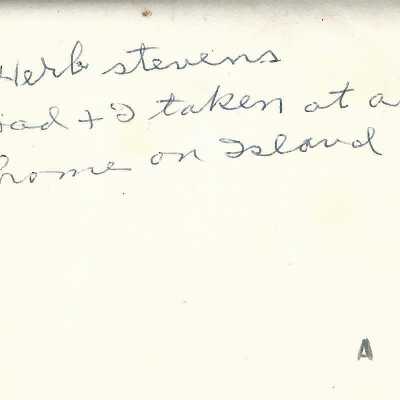 Herb stevens
Dad + I taken at a
home on Island
A